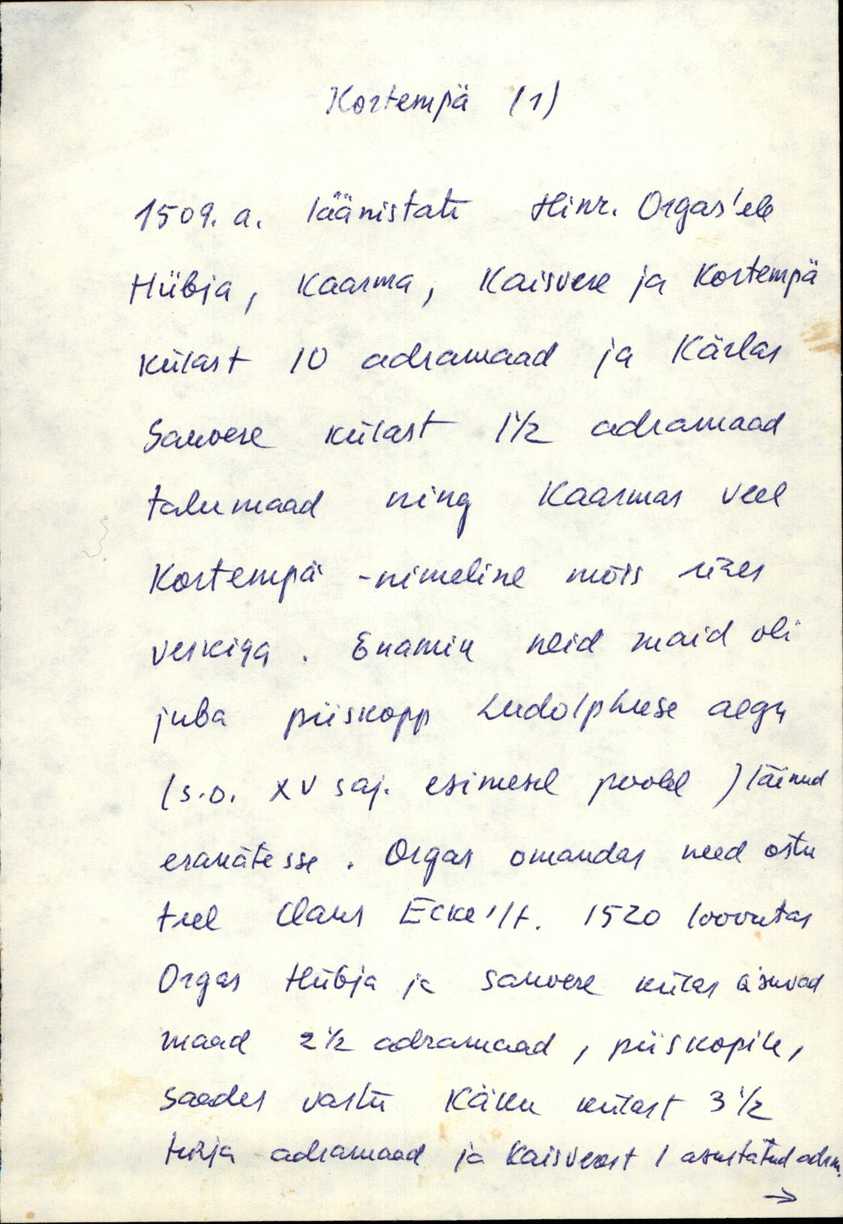 Kortempä (1)
1509. a. läänistati Hinr. Orgas'ele
Hübja, Kaarma, Kaisvere ja Kortempä
külast 10 adramaad ja Kärlas
Sauvere külast 1 1/2 adramaad
talumaad ning Kaarmas veel
Kortempä -nimeline mõis ühes
veskiga. Enamik neid maid oli
juba piiskopp Ludolphuse aegu
(s.o. XV saj. esimesel poolel) läinud
erakätesse. Orgas omandas need ostu
teel Claus Ecke'lt. 1520 loovutas
Orgas Hübja ja Sauvere külas asuvad
maad 2 1/2 adramaad, piiskopile,
saades vastu Käku külast 3 1/2
tühja adramaad ja Kaisverest 1 asustatud adrm.
→